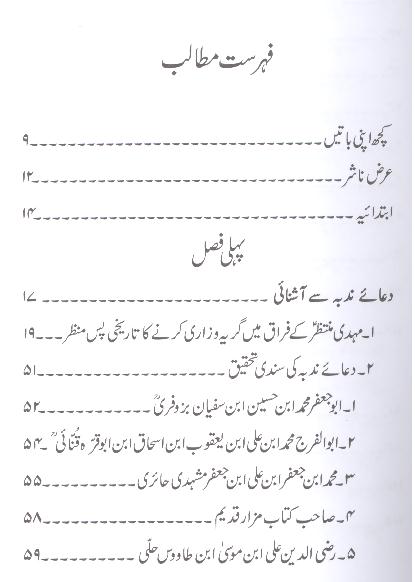 فہرست مطالب
کچھ اپنی باتیں ------------------------------ ۹
عرض ناشر ------------------------------ ۱۲
ابتدائیہ ------------------------------ ۱۴
پہلی فصل
دعائے ندبہ سے آشنائی ---------------------- ۱۷
۱۔ مہدی منتظرؑ کے فراق میں گریہ وزاری کرنے کا تاریخی پس منظر --- ۱۹
۲۔ دعائے ندبہ کی سندی تحقیق -------------------- ۵۱
۱۔ ابو جعفر محمد ابن حسین ابن سفیان بزوفریؒ ------------ ۵۲
۲۔ ابوالفرج محمد ابن علی ابن یعقوب ابن اسحاق ابن ابو قرّہ قُنّائیؒ - ۵۴
۳۔ محمد ابن جعفر ابن علی ابن جعفر مشہدی حائری ---------- ۵۵
۴۔ صاحب کتاب مزار قدیم ------------------ ۵۸
۵۔ رضی الدین علی ابن موسیٰ ابن طاووس حلّی ---------- ۵۹